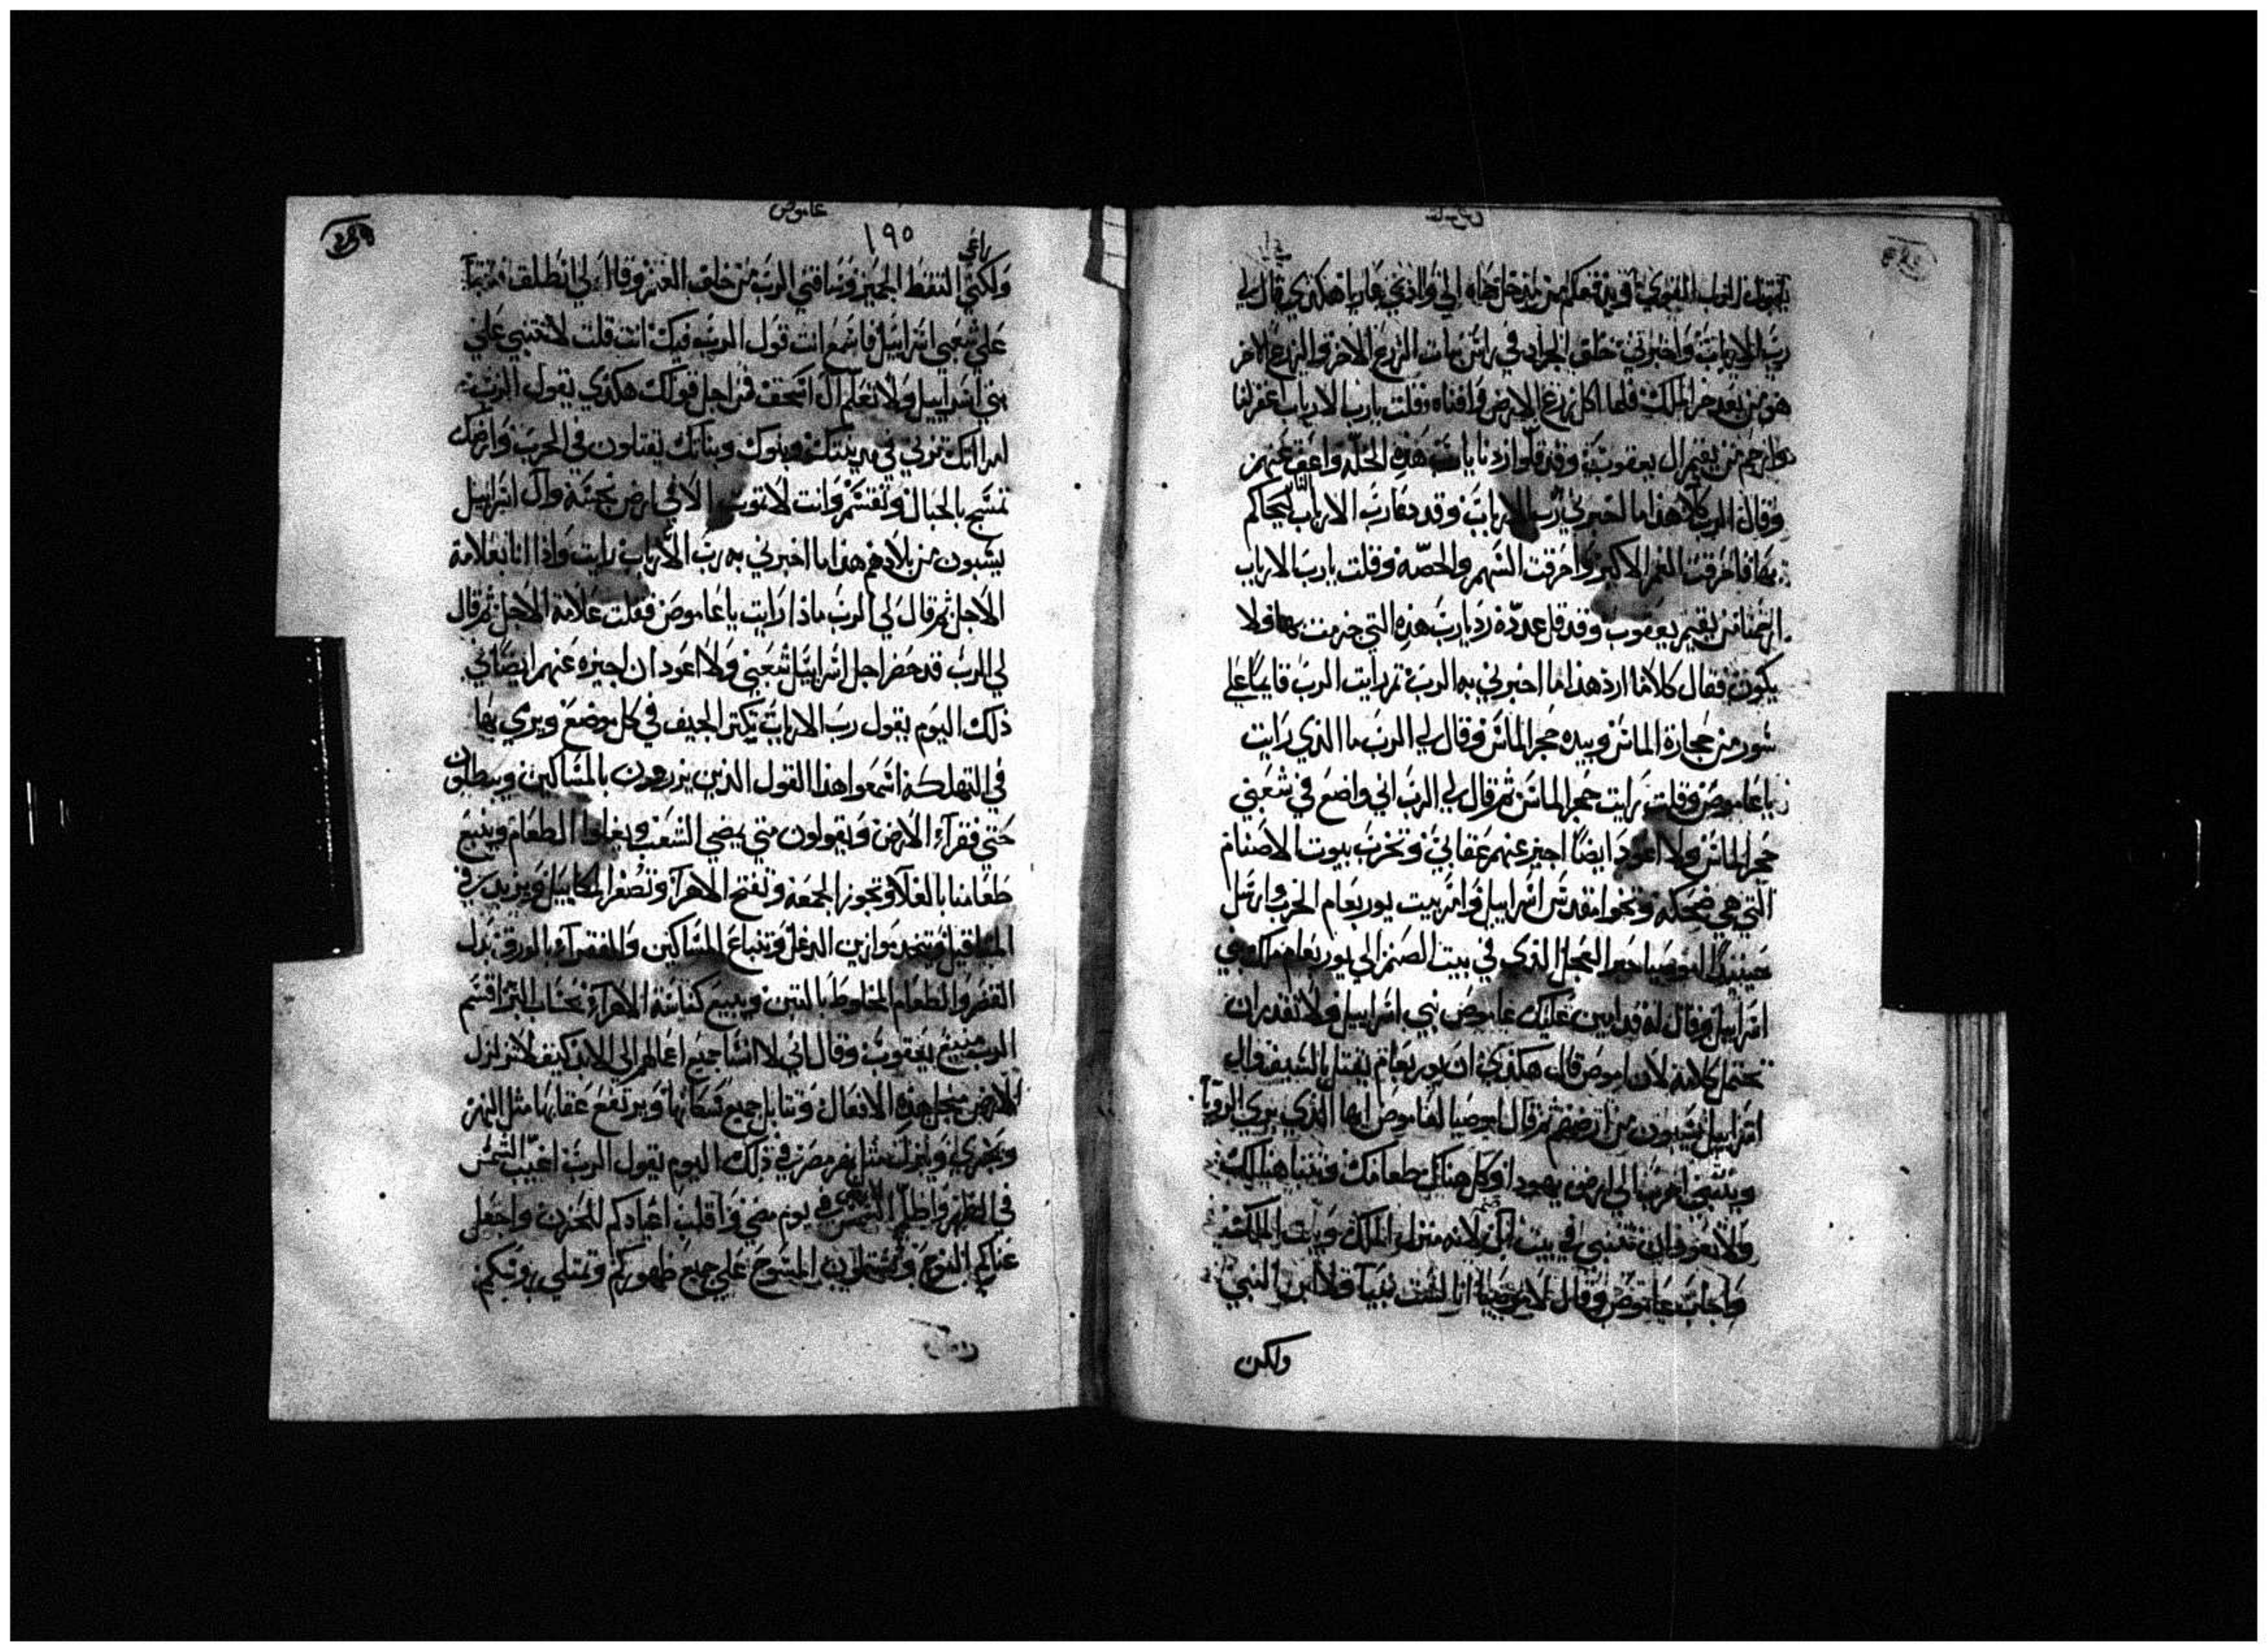 يقول الرب القوي
رب الارباب واخبرني خلق الجراد في نبات الزرع الاخر والزرع الاخر
هو من بعد جز الملك فلما اكل زرع الارض وافناه وقلت يارب الارباب اغفر لنا
وارحم من يقيم ال يعقوب وقد قلوا اردنا يارب هذه الخلة واعف عنهم
وقال الرب كلا هذا ما اخبرني رب الارباب وقد دعا رب الارباب ليحاكم
بها فاحرقت الغمر الاكبر واحرقت السهم والحصه وقلت يارب الارباب
ارحمنا من يقيم يعقوب وقد قل عدده رد يارب هذه التي جزمت بها ولا
يكون فقال كلاما ارد هذا ما اخبرني به الرب ثم رايت الرب قايما علي
سور من حجارة الماس وبيده حجر الماس وقال لي الرب ما الذي رايت
ياعاموص وقلت رايت حجر الماس ثم قال لي الرب اني واضع في شعبي
حجر الماس ولا اعود ايضا اجيز عنهم عقابي وتخرب بيوت الاصنام
التي هي ضحكه ونحو مقدس اسراييل واثر بيت يوربعام الخرب وارسل
حينيذ اموصيا حبر العجل الذي في بيت الصنم الي يوربعام ملك بني
اسراييل وقال له قد امين عليك عاموص بني اسراييل ولا تقدر ان
تحتمل كلامه لان عاموص قال هكذي ان يوربعام يقتل بالسيف وال
اسراييل يسبون من ارضهم ثم قال اموصيا لعاموص ايها الذي يري الرويا
وينبي اهرب الي ارض يهودا وكل هناك طعامك وتنبا هنالك
ولا تعود ان تتنبي في بيت ايل لانه منزل الملك وبيت الملك
واجاب عاموص وقال لاموصيا انا لست نبيا ولا ابن النبي
ولكن
عاموص
١٩٥
راعي
ولكني التقط الجميز وساقني الرب من خلف الغنم وقال لي انطلق فتنبا
علي شعبي اسراييل فاسمع انت قول الرب فيك انت قلت لا تتنبي علي
بني اسراييل ولا تعلم ال اسحق فمن اجل قولك هكذي يقول الرب
امراتك تزني في مدينتك وبنوك وبناتك يقتلون في الحرب وارضك
تمسح بالحبال وتقتسم وانت لا تموت الا في ارض نجسة وال اسراييل
يسبون من بلادهم هذا ما اخبرني به رب الارباب رايت واذا انا بعلامة
الاجل ثم قال لي الرب ماذا رايت ياعاموص فقلت علامة الاجل ثم قال
لي الرب قد حضر اجل اسراييل شعبي ولا اعود ان اجيزه عنهم ايضا في
ذلك اليوم يقول رب الارباب تكثر الجيف في كل موضع ويري بها
في التهلكة اسمعوا هذا القول الذين يزدرون بالمساكين ويبطلون
حتي فقراء الارض ويقولون متي يمضي السبت ويغلوا الطعام ونبيع
طعامنا بالغلا وتجوز الجمعه وتفتح الاهرا وتصغر المكاييل ويزيد في
المثاقيل وتتخد موازين الدغل ونبتاع المساكين والفقراء بالورق بدل
القضم والطعام المخلوط بالتبن ونبيع كناسة الاهراء بحساب البر اقسم
الرب منيع يعقوب وقال اني لا انسا جميع اعمالهم الي الابد كيف لا تتزلزل
الارض من اجل هذه الافعال وتتابل جميع سكانها ويرتفع عقابها مثل النهر
وتجري وينزل مثل نهر مصر في ذلك اليوم يقول الرب اغيب الشمس
في الظهر واظلم الشمس في يوم مضي واقلب اعيادكم للحزن واجعل
غناكم النوح وتشتملون المسوح علي جميع ظهوركم وتمتلي روسكم